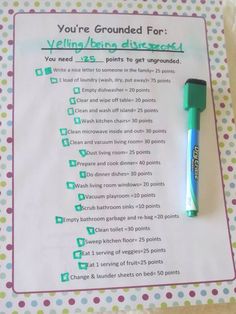 You're Grounded For:
Yelling/being disrespectful
You need 125 points to get ungrounded.
Write a nice letter to someone in the family= 25 points
1 load of laundry (wash, dry, put away)= 75 points
Empty dishwasher = 20 points
Clear and wipe off table= 20 points
Clean and wash off island= 25 points
Wash kitchen chairs= 30 points
Clean microwave inside and out= 30 points
Clean and vacuum living room= 30 points
Dust living room= 25 points
Prepare and cook dinner= 40 points
Do dinner dishes= 30 points
Wash living room windows= 20 points
Vacuum playroom=10 points
Scrub bathroom sinks=10 points
Empty bathroom garbage and re-bag =20 points
Clean toilet =30 points
Sweep kitchen floor= 25 points
Eat 1 serving of veggies=25 points
Eat 1 serving of fruit=25 points
Change & launder sheets on bed= 50 points